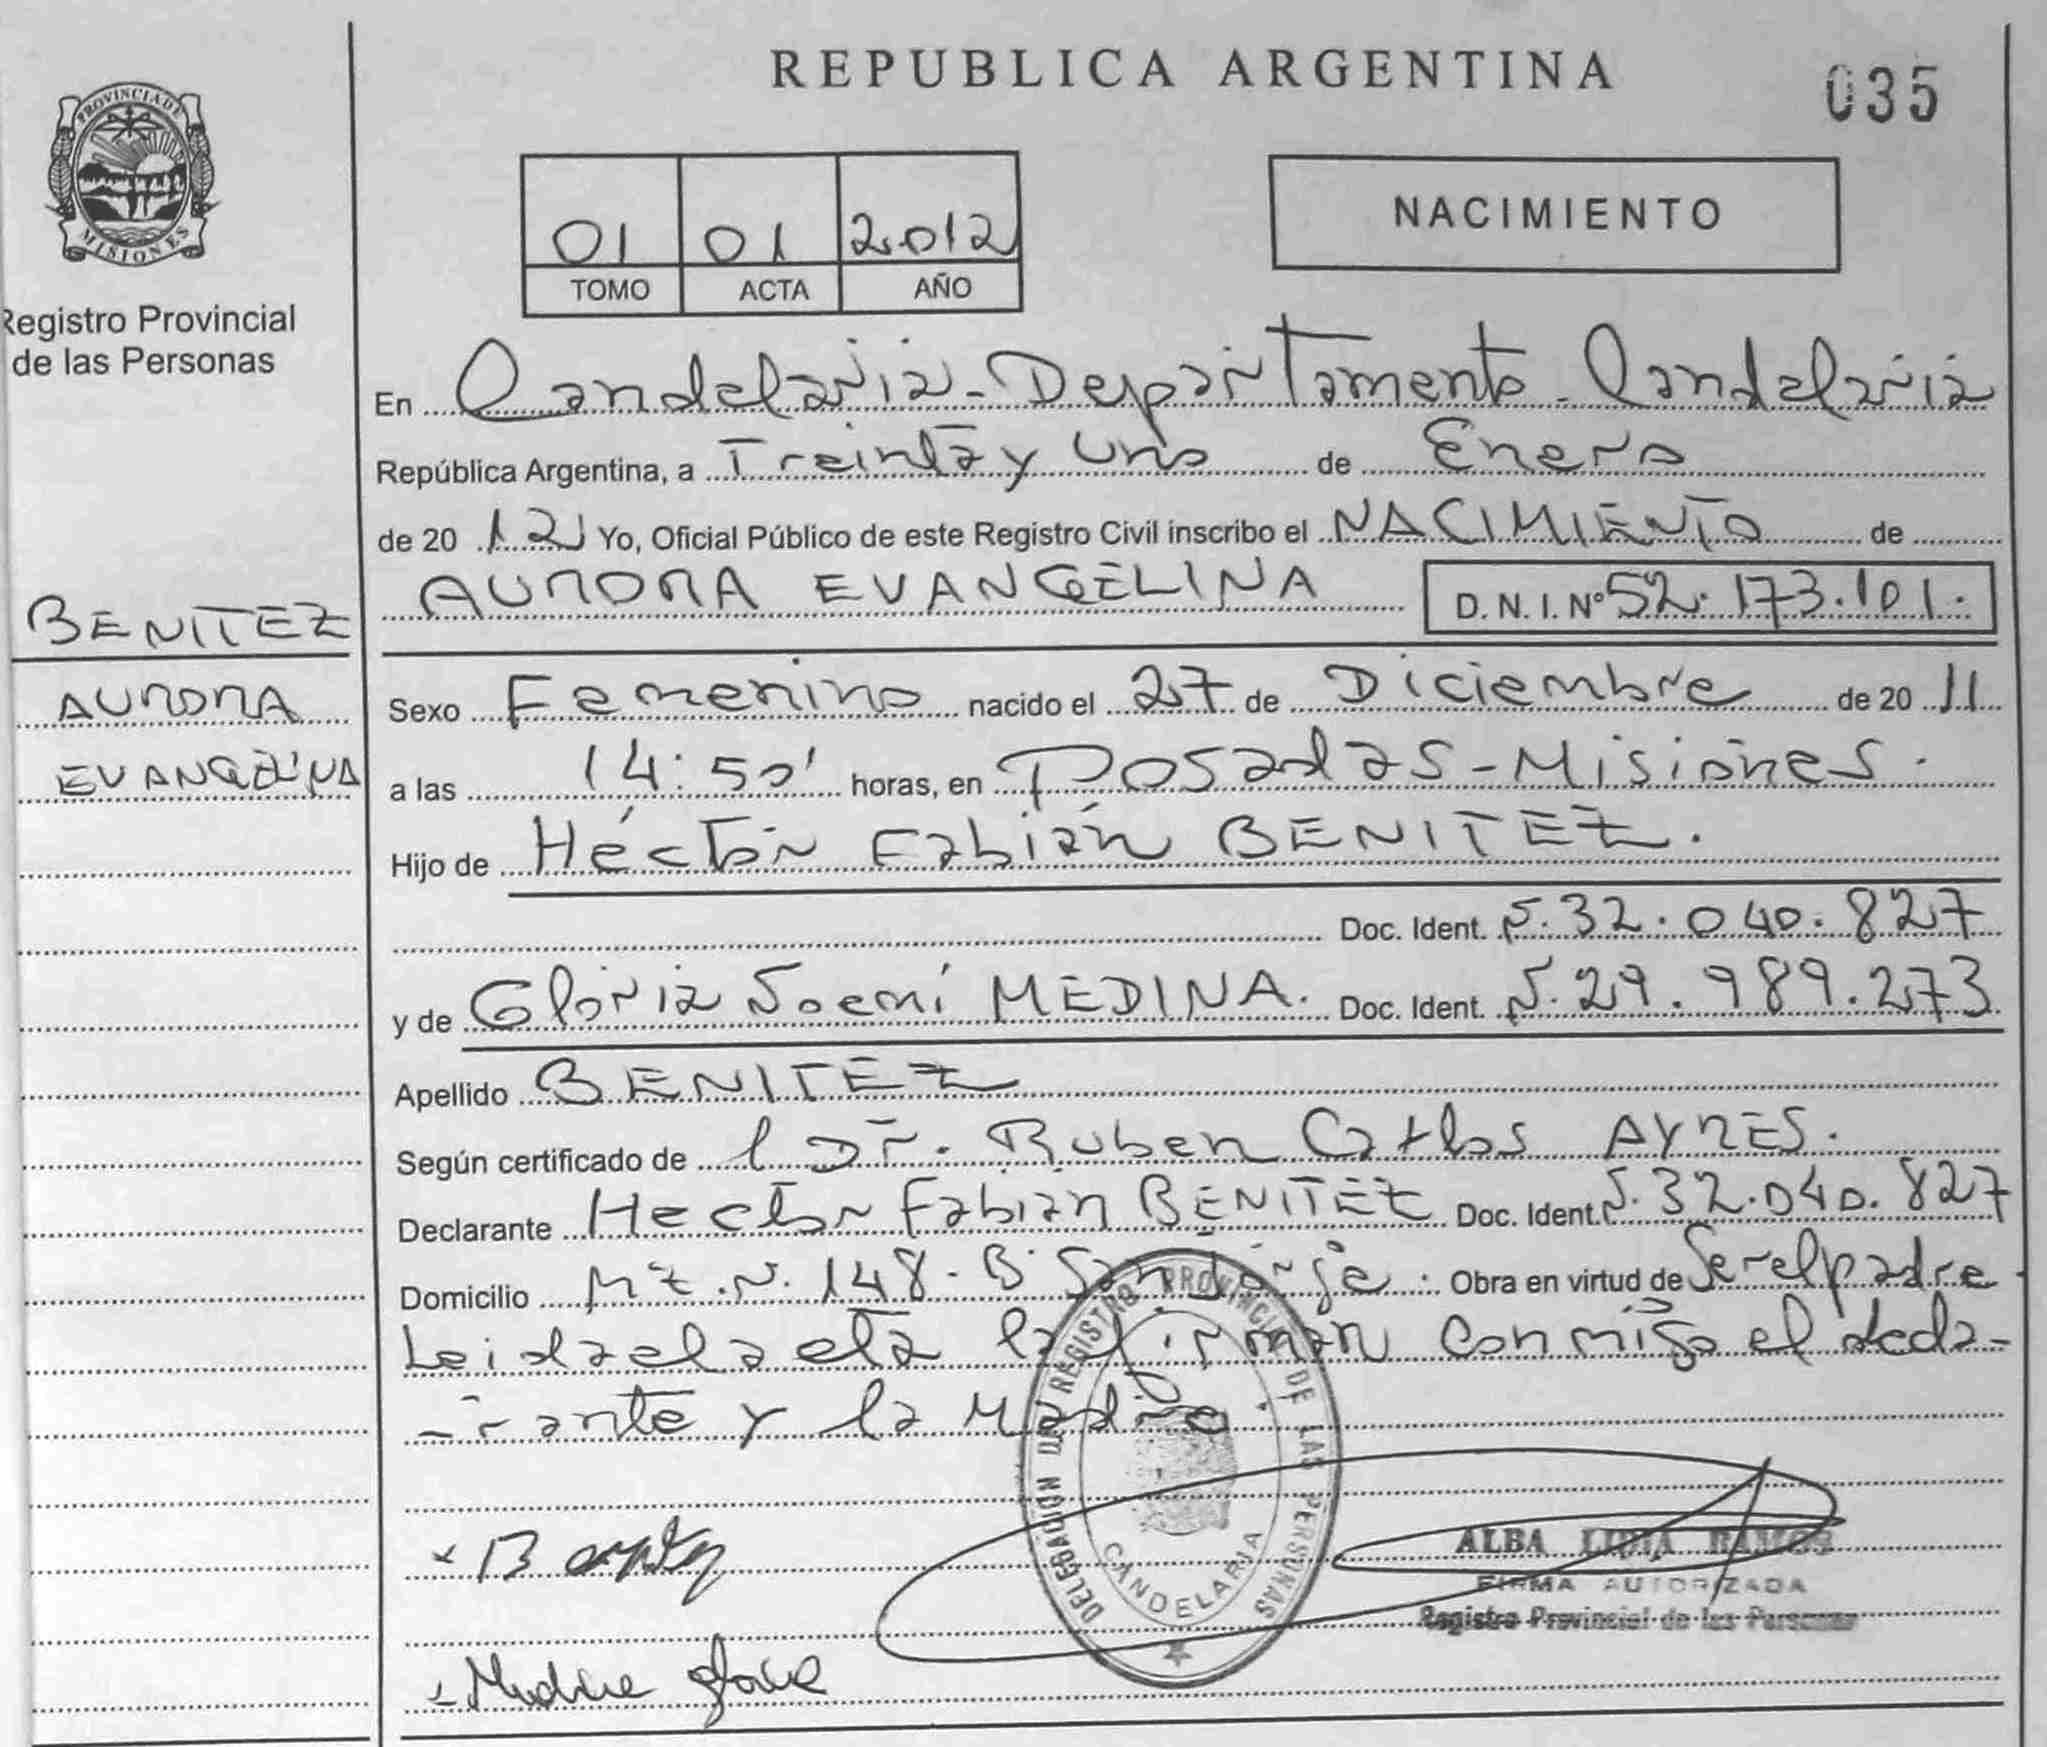 REPUBLICA ARGENTINA
035
PROVINCIA DE
MISIONES
Registro Provincial
de las Personas
01 01 2012
TOMO ACTA AÑO
NACIMIENTO
En Candelaria - Departamento Candelaria
República Argentina, a Treinta y uno de Enero
de 20 12 Yo, Oficial Público de este Registro Civil inscribo el NACIMIENTO de
AURORA EVANGELINA D. N. I. Nº 52.173.101.
BENITEZ
AURORA
EVANGELINA
Sexo Femenino nacido el 27 de Diciembre de 20 11
a las 14:50' horas, en Posadas - Misiones.
Hijo de Héctor Fabián BENITEZ.
Doc. Ident. N. 32.040.827
y de Gloria Noemí MEDINA. Doc. Ident. N. 29.989.273
Apellido BENITEZ
Según certificado de l Dr. Ruben Carlos AYRES.
Declarante Hector Fabián BENITEZ Doc. Ident. N. 32.040.827
Domicilio Mz. N. 148 - B San Jorge. Obra en virtud de Ser el padre.
Leida el acta la firman conmigo el decla-
-rante y la Madre
DELEGACION DEL REGISTRO PROVINCIAL DE LAS PERSONAS
CANDELARIA
ALBA LIDIA RAMOS
FIRMA AUTORIZADA
Registro Provincial de las Personas